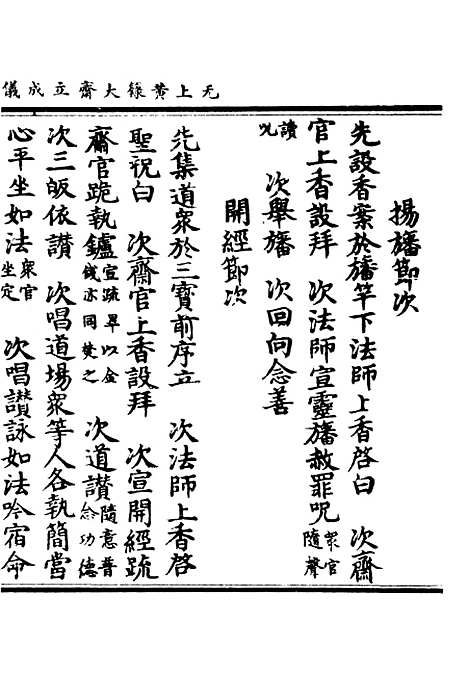 无上黄籙大齋立成儀
揚旛節次
先設香案於旛竿下法師上香啓白　次齋
官上香設拜　次法師宣靈旛赦罪呪衆官隨聲
讚呪　次舉旛　次回向念善
開經節次
先集道衆於三寶前序立　次法師上香啓
聖祝白　次齋官上香設拜　次宣開經疏
齋官跪執鑪宣疏畢以金錢亦同焚之　次道讃隨意普念功德
次三皈依讃　次唱道場衆等人各執簡當
心平坐如法衆官坐定　次唱讃詠如法吟宿命